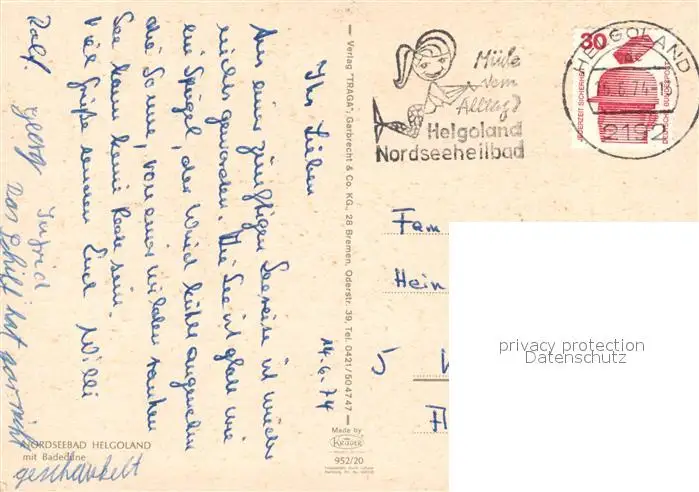 14.6.74
Ihr Lieben
Aus einer zünftigen Seereise ist nichts
geworden. Die See ist glatt wie
ein Spiegel, der Wind kühlt angenehm
die Sonne, von einer wilden
See kann keine Rede sein.
Viele Grüße senden Euch Willi
Ralf. Georg Ingrid
das Schiff hat gar nicht
geschaukelt
NORDSEEBAD HELGOLAND
mit Badedüne
Verlag "TRAGA", Garbrecht & Co. KG., 28 Bremen, Oderstr. 39, Tel. 0421/504747
Made by
KRÜGER
952/20
Müde
vom
Alltag?
Helgoland
Nordseeheilbad
HELGOLAND
2192
30
JEDERZEIT SICHERHEIT
DEUTSCHE BUNDESPOST
Fam
Hein
5
privacy protection
Datenschutz